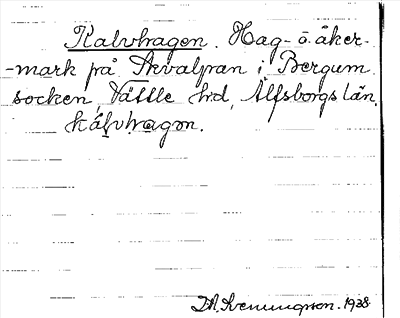 Kalvhagen. Hag- o. åker-
-mark på Skvalpan i Bergum
socken, Vättle hd, Älfsborgs län.
kálvhagən.
D.A. Svenungsson. 1938